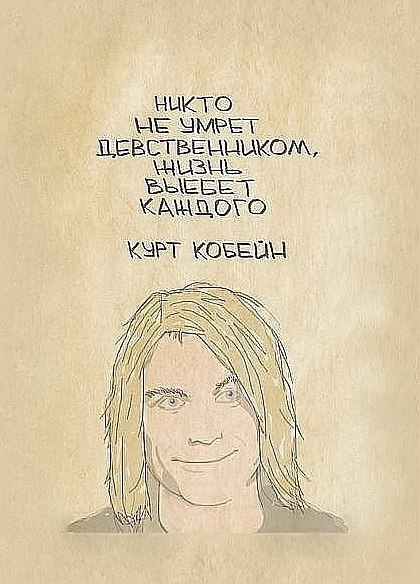 НИКТО
НЕ УМРЕТ
ДЕВСТВЕННИКОМ,
ЖИЗНЬ
ВЫЕБЕТ
КАЖДОГО
КУРТ КОБЕЙН